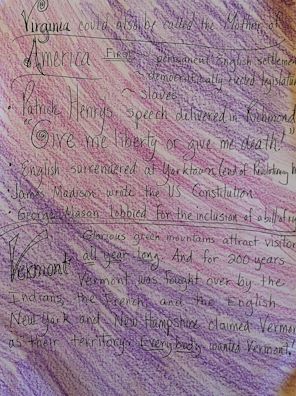 Virginia could also be called the Mother of
America First ~ permanent English settlement
~ democratically elected legislature
~ Slaves
• Patrick Henry's speech delivered in Richmond
"Give me liberty or give me death."
• English surrendered at Yorktown (end of Revolutionary
• James Madison wrote the US Constitution
• George Mason lobbied for the inclusion of a bill of
Vermont
Glorious green mountains attract visitor
all year long. And for 200 years
Vermont was fought over by the
Indians, the French, and the English.
New York and New Hampshire claimed Vermo
as their territory. Everybody wanted Vermont!